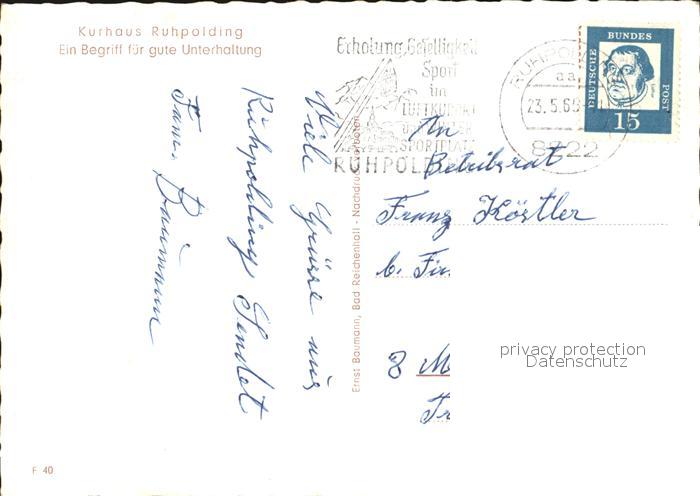 Kurhaus Ruhpolding
Ein Begriff für gute Unterhaltung
Viele Grüsse aus
Ruhpolding sendet
Fam. Baumann
Ernst Baumann, Bad Reichenhall - Nachdruck verboten
Erholung, Geselligkeit
Sport
im
LUFTKURORT
SPORTPLATZ
RUHPOLDING
RUHPOLDING
aa
23.5.65
8222
DEUTSCHE
BUNDES
POST
15
An
Betriebsrat
Franz Köstler
b. Fir.
8 M
Tr
privacy protection
Datenschutz
F 40